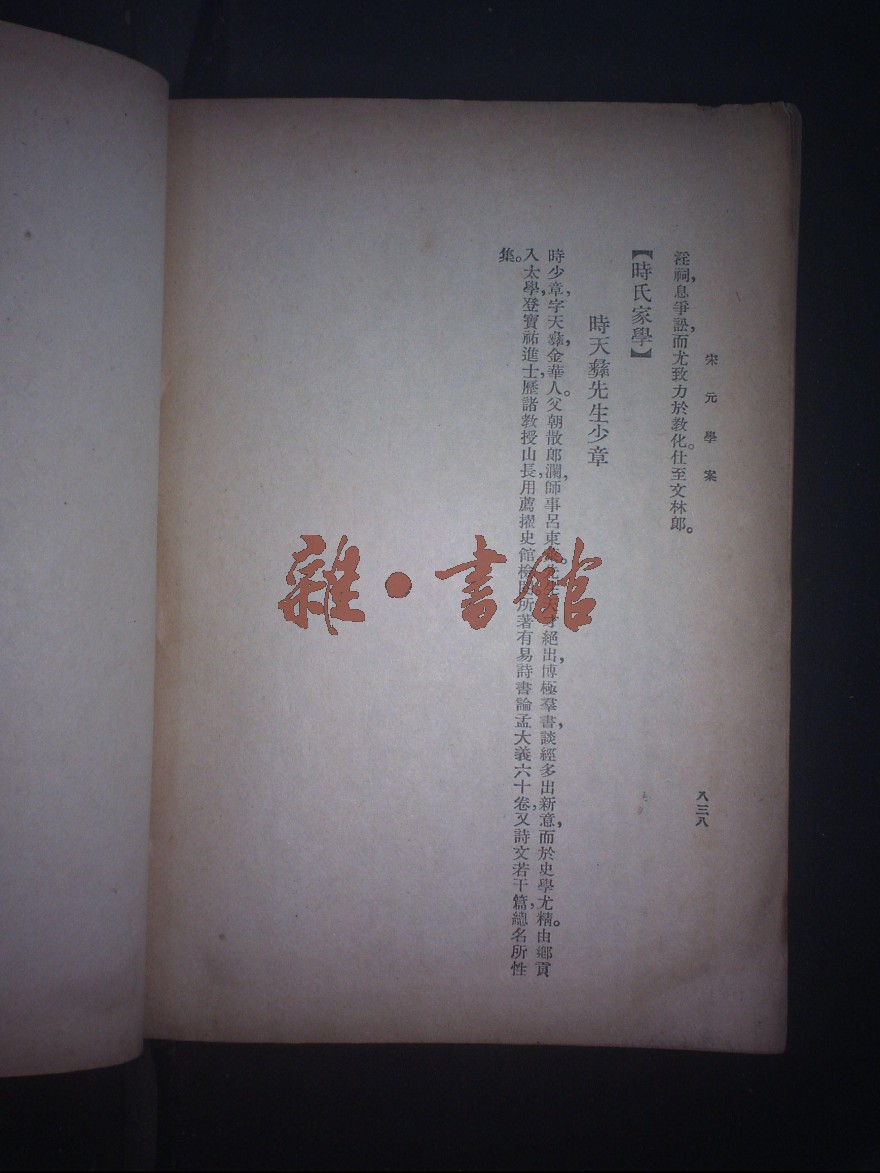 宋元學案
八三八
淫祠，息爭訟，而尤致力於教化。仕至文林郎。
【時氏家學】
時天彝先生少章
時少章，字天彝，金華人。父朝散郎瀾，師事呂東 絕出，博極羣書，談經多出新意，而於史學尤精。由鄉貢
入太學，登寶祐進士，歷諸教授山長，用薦擢史館檢閱。所著有易詩書論孟大義六十卷，又詩文若干篇，總名所性
集。
雜·書館